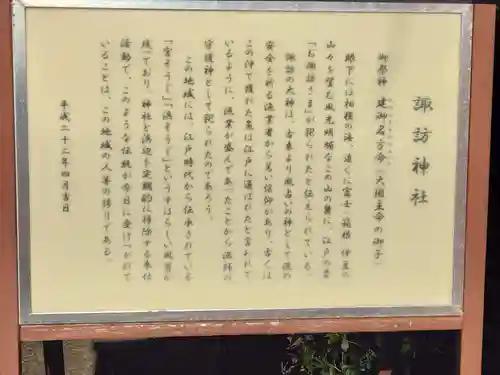 諏訪神社
御祭神 建御名方命(大国主命の御子)
眼下には相模の海、遠くに富士・箱根・伊豆の
山々を望む風光明媚なこの山の麓に、江戸の昔
「お諏訪さま」が祀られたと伝えられている。
諏訪の大神は、古来より風占いの神として海の
安全を祈る漁業者から篤い信仰があり、古くは
この沖で獲れた魚は江戸に運ばれたと言われて
いるように、漁業が盛んであったことから漁師の
守護神として祀られたのであろう。
この地域には、江戸時代から伝承されている
「宮そうじ」「浜そうじ」というすばらしい風習が
残っており、神社と浜辺を定期的に掃除する奉仕
活動で、このような伝統が今日に受けつがれて
いることは、この地域の人等の誇りである。
平成二十二年四月吉日